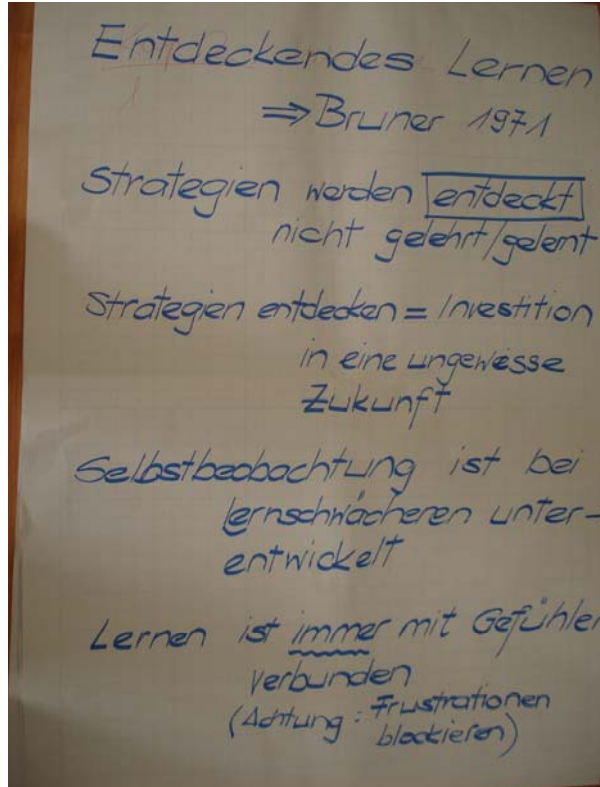 Entdeckendes Lernen
⇒ Bruner 1971
Strategien werden entdeckt
nicht gelehrt/gelernt
Strategien entdecken = Investition
in eine ungewisse
Zukunft
Selbstbeobachtung ist bei
lernschwächeren unter-
entwickelt
Lernen ist immer mit Gefühlen
verbunden
(Achtung: Frustrationen
blockieren)